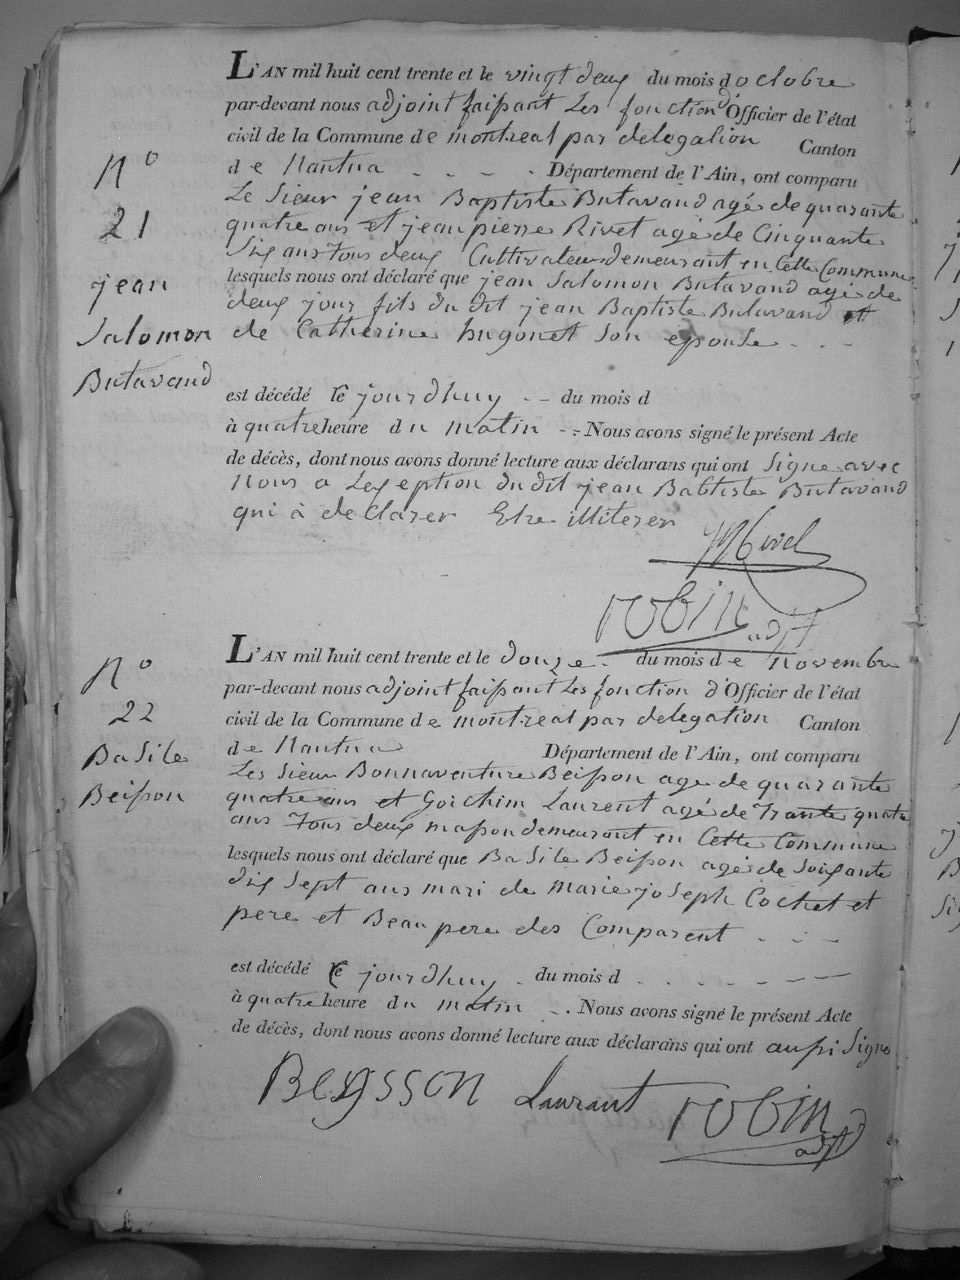 L'AN mil huit cent trente et le vingt deux du mois d octobre
par-devant nous adjoint faissant Les fonction d'Officier de l'état
civil de la Commune de montreal par delegation Canton
de Nantua - - - - Département de l'Ain, ont comparu
N° 21
Le Sieur jean Baptiste Butavand agé de quarante
quatre ans et jean pierre Rivet agé de Cinquante
Six ans Tous deux Cultivateur demeurant en Cette Commune
jean
lesquels nous ont déclaré que jean Salomon Butavand agé de
deux jour fils du dit jean Baptiste Butavand et
Salomon
de Catherine hugonet Son epouse - - -
Butavand
est décédé le jourdhuy - - du mois d
à quatre heure du matin - - Nous avons signé le présent Acte
de décès, dont nous avons donné lecture aux déclarans qui ont Signe avec
Nous a Lexeption du dit jean Babtiste Butavand
qui à de Clarer Etre illiterer
robin adjt
L'AN mil huit cent trente et le douze du mois de Novembre
N° 22
par-devant nous adjoint faissant Les fonction d'Officier de l'état
civil de la Commune de montreal par delegation Canton
de Nantua Département de l'Ain, ont comparu
BaSile
Les Sieur Bonnaventure Beisson age de quarante
Beisson
quatre ans et Goichim Laurent agé de Trante quatre
ans Tous deux masson demeurant en Cette Commune
lesquels nous ont déclaré que BaSile Beisson agé de Soixante
dix Sept ans mari de Marie joseph Cochet et
pere et Beau pere des Comparent - - -
est décédé le jourdhuy - du mois d - - - - - -
à quatre heure du matin - - Nous avons signé le présent Acte
de décès, dont nous avons donné lecture aux déclarans qui ont aussi Signe
Beysson Laurant robin adjt